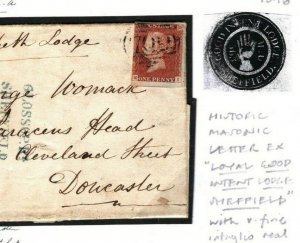 beth Lodge
ONE PENNY
rge Womack
GLOSSOP
aracens Head
Cleveland Street
Doncaster
GOOD INTENT LODGE
SHEFFIELD
HISTORIC
MASONIC
LETTER EX
"LOYAL GOOD
INTENT LODGE
SHEFFIELD"
with v. fine
intaglio seal